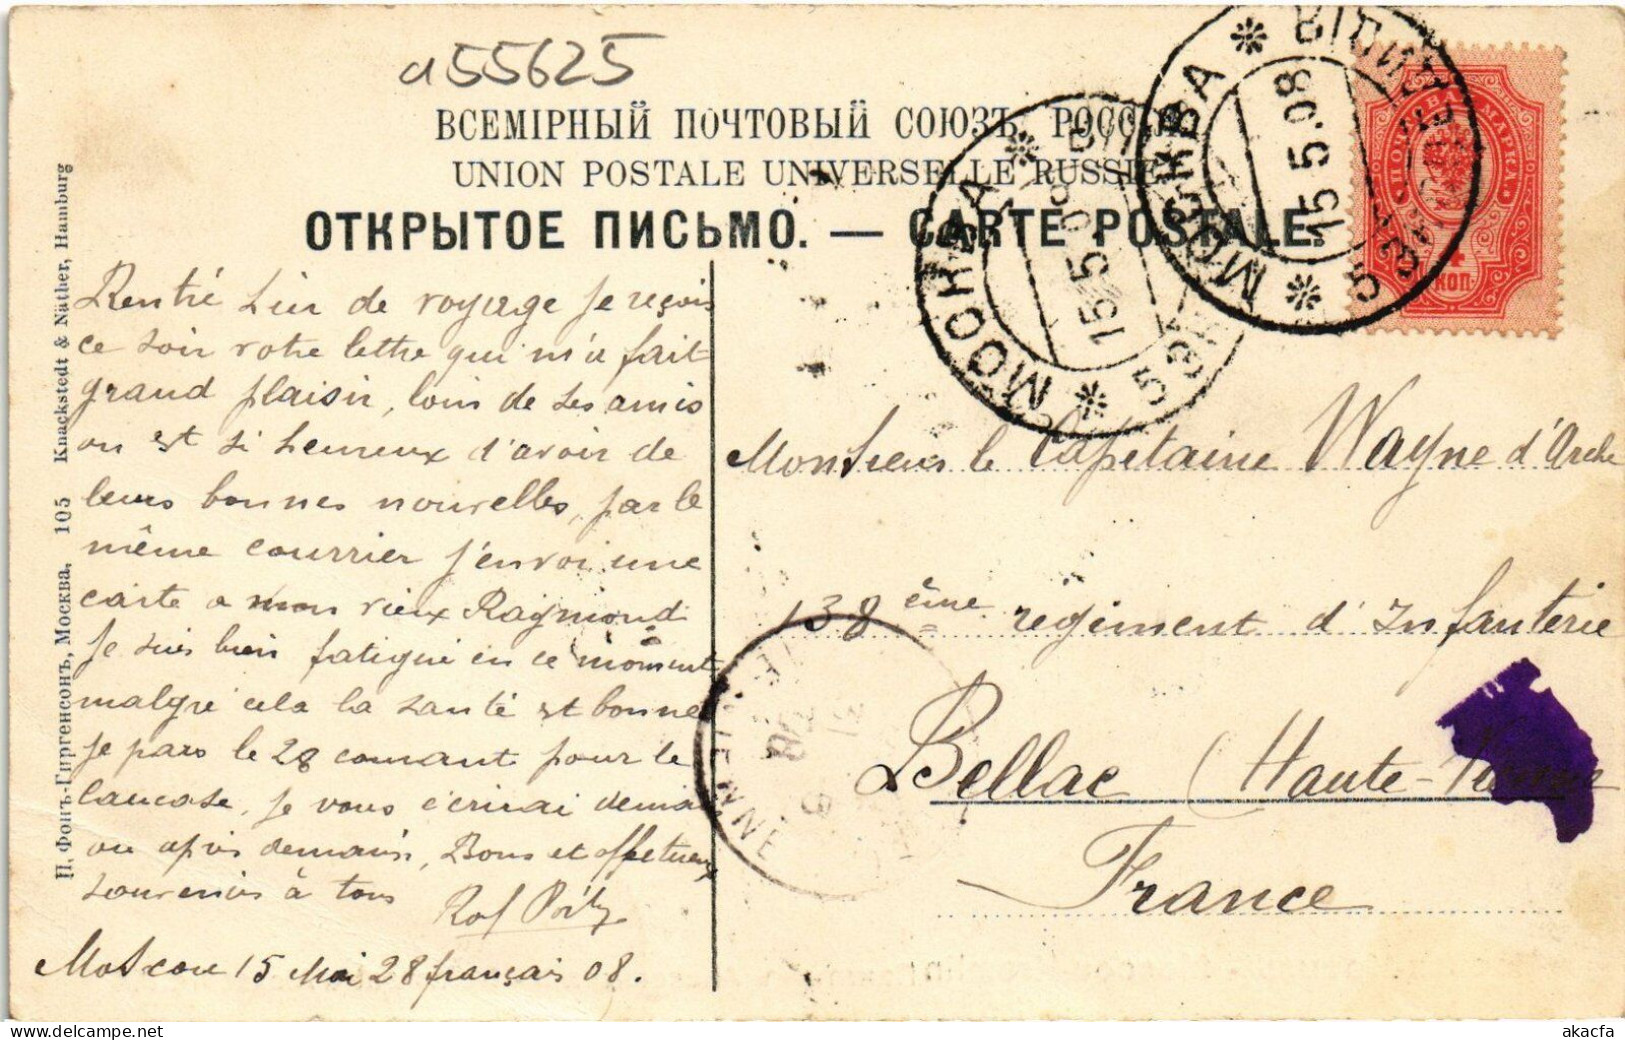 a55625
ВСЕМІРНЫЙ ПОЧТОВЫЙ СОЮЗЪ. РОССІЯ
UNION POSTALE UNIVERSELLE RUSSIE
ОТКРЫТОЕ ПИСЬМО. — CARTE POSTALE.
П. Фонъ-Гиргенсонъ, Москва, 105 Knackstedt & Näther, Hamburg
Rentré hier de voyage je reçois
ce soir votre lettre qui m'a fait
grand plaisir, loin de ses amis
on est si heureux d'avoir de
leurs bonnes nouvelles, par le
même courrier j'envoi une
carte a mon vieux Raymond
Je suis bien fatigué en ce moment
malgré cela la santé est bonne
Je pars le 28 courant pour le
Caucase, je vous écrirai demain
ou après demain, Bons et affectueux
souvenirs à tous
Moscou 15 Mai 28 français 08.
МОСКВА
15 5 08
МОСКВА
15 5.08
ПОЧТОВАЯ МАРКА
4 КОП.
Monsieur le Capitaine Wayne d'Arche
138ème régiment d'Infanterie
Bellac (Haute-Vienne
France
VIENNE
akacfa